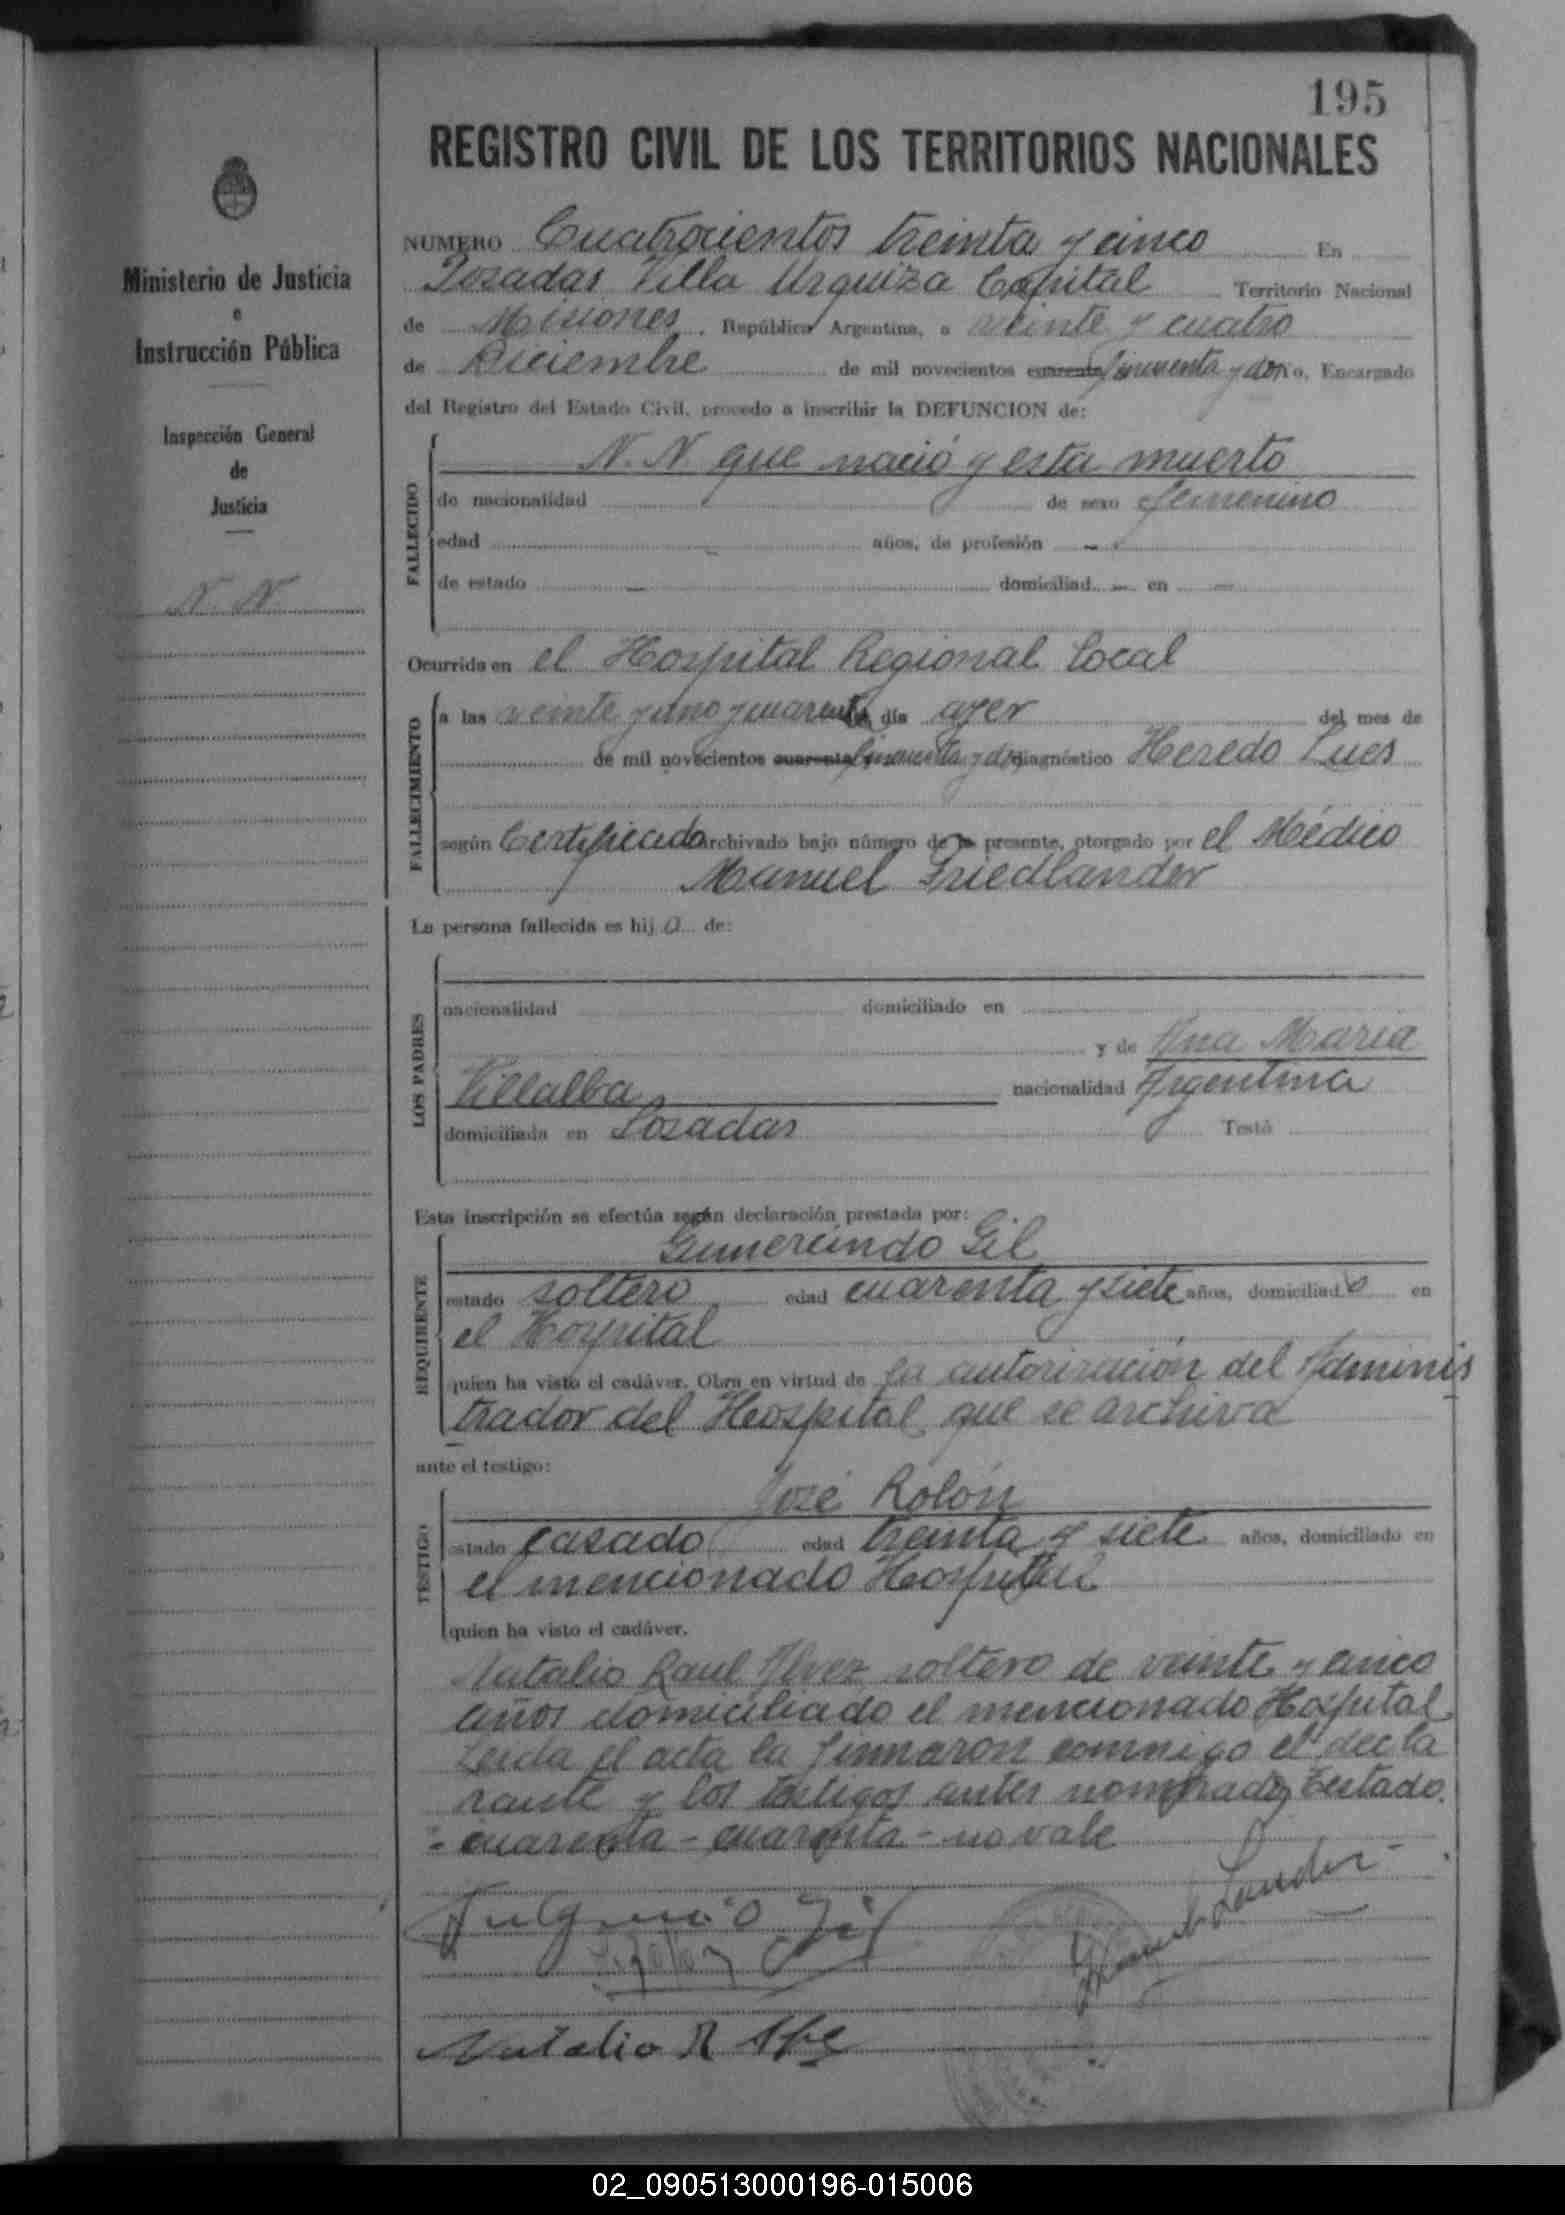 195
REGISTRO CIVIL DE LOS TERRITORIOS NACIONALES
Ministerio de Justicia
e
Instrucción Pública
Inspección General
de
Justicia
N. N.
NUMERO Cuatrocientos treinta y cinco En
Posadas Villa Urquiza Capital Territorio Nacional
de Misiones, República Argentina, a veinte y cuatro
de Diciembre de mil novecientos cuarenta cincuenta y dos yo, Encargado
del Registro del Estado Civil, procedo a inscribir la DEFUNCION de:
FALLECIDO
N. N. que nació y esta muerto
de nacionalidad de sexo femenino
edad años, de profesión -
de estado - domiciliad - en -
Ocurrida en el Hospital Regional Local
FALLECIMIENTO
a las veinte y uno y cuarenta día ayer del mes de
de mil novecientos cuarenta cincuenta y dos diagnóstico Heredo Lues
según Certificado archivado bajo número de la presente, otorgado por el Médico
Manuel Friedlander
La persona fallecida es hija de:
LOS PADRES
nacionalidad domiciliado en
y de Ana Maria
Villalba nacionalidad Argentina
domiciliada en Posadas Testó
Esta inscripción se efectúa según declaración prestada por:
REQUIRENTE
Gumercindo Gil
estado soltero edad cuarenta y siete años, domiciliado en
el Hospital
quien ha visto el cadáver. Obra en virtud de la autorización del Adminis
trador del Hospital que se archiva
ante el testigo:
TESTIGO
José Rolón
estado casado edad treinta y siete años, domiciliado en
el mencionado Hospital
quien ha visto el cadáver.
Natalio Raul Alvez soltero de veinte y cinco
años domiciliado el mencionado Hospital
Leida el acta la firmaron conmigo el decla
rante y los testigos antes nombrados Testado.
- cuarenta - cuarenta - no vale
Gil
Natalio R
02_090513000196-015006